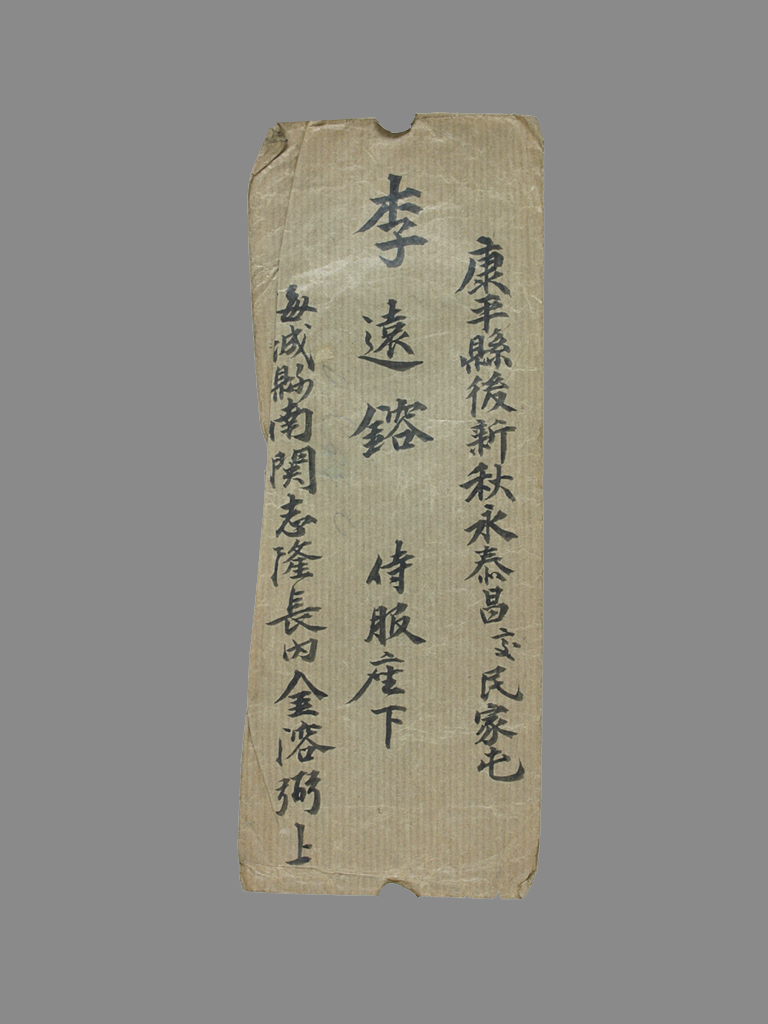 康平縣後新秋永泰昌交民家屯
李遠鎔 侍服座下
海城縣南関志隆長內金溶弼上